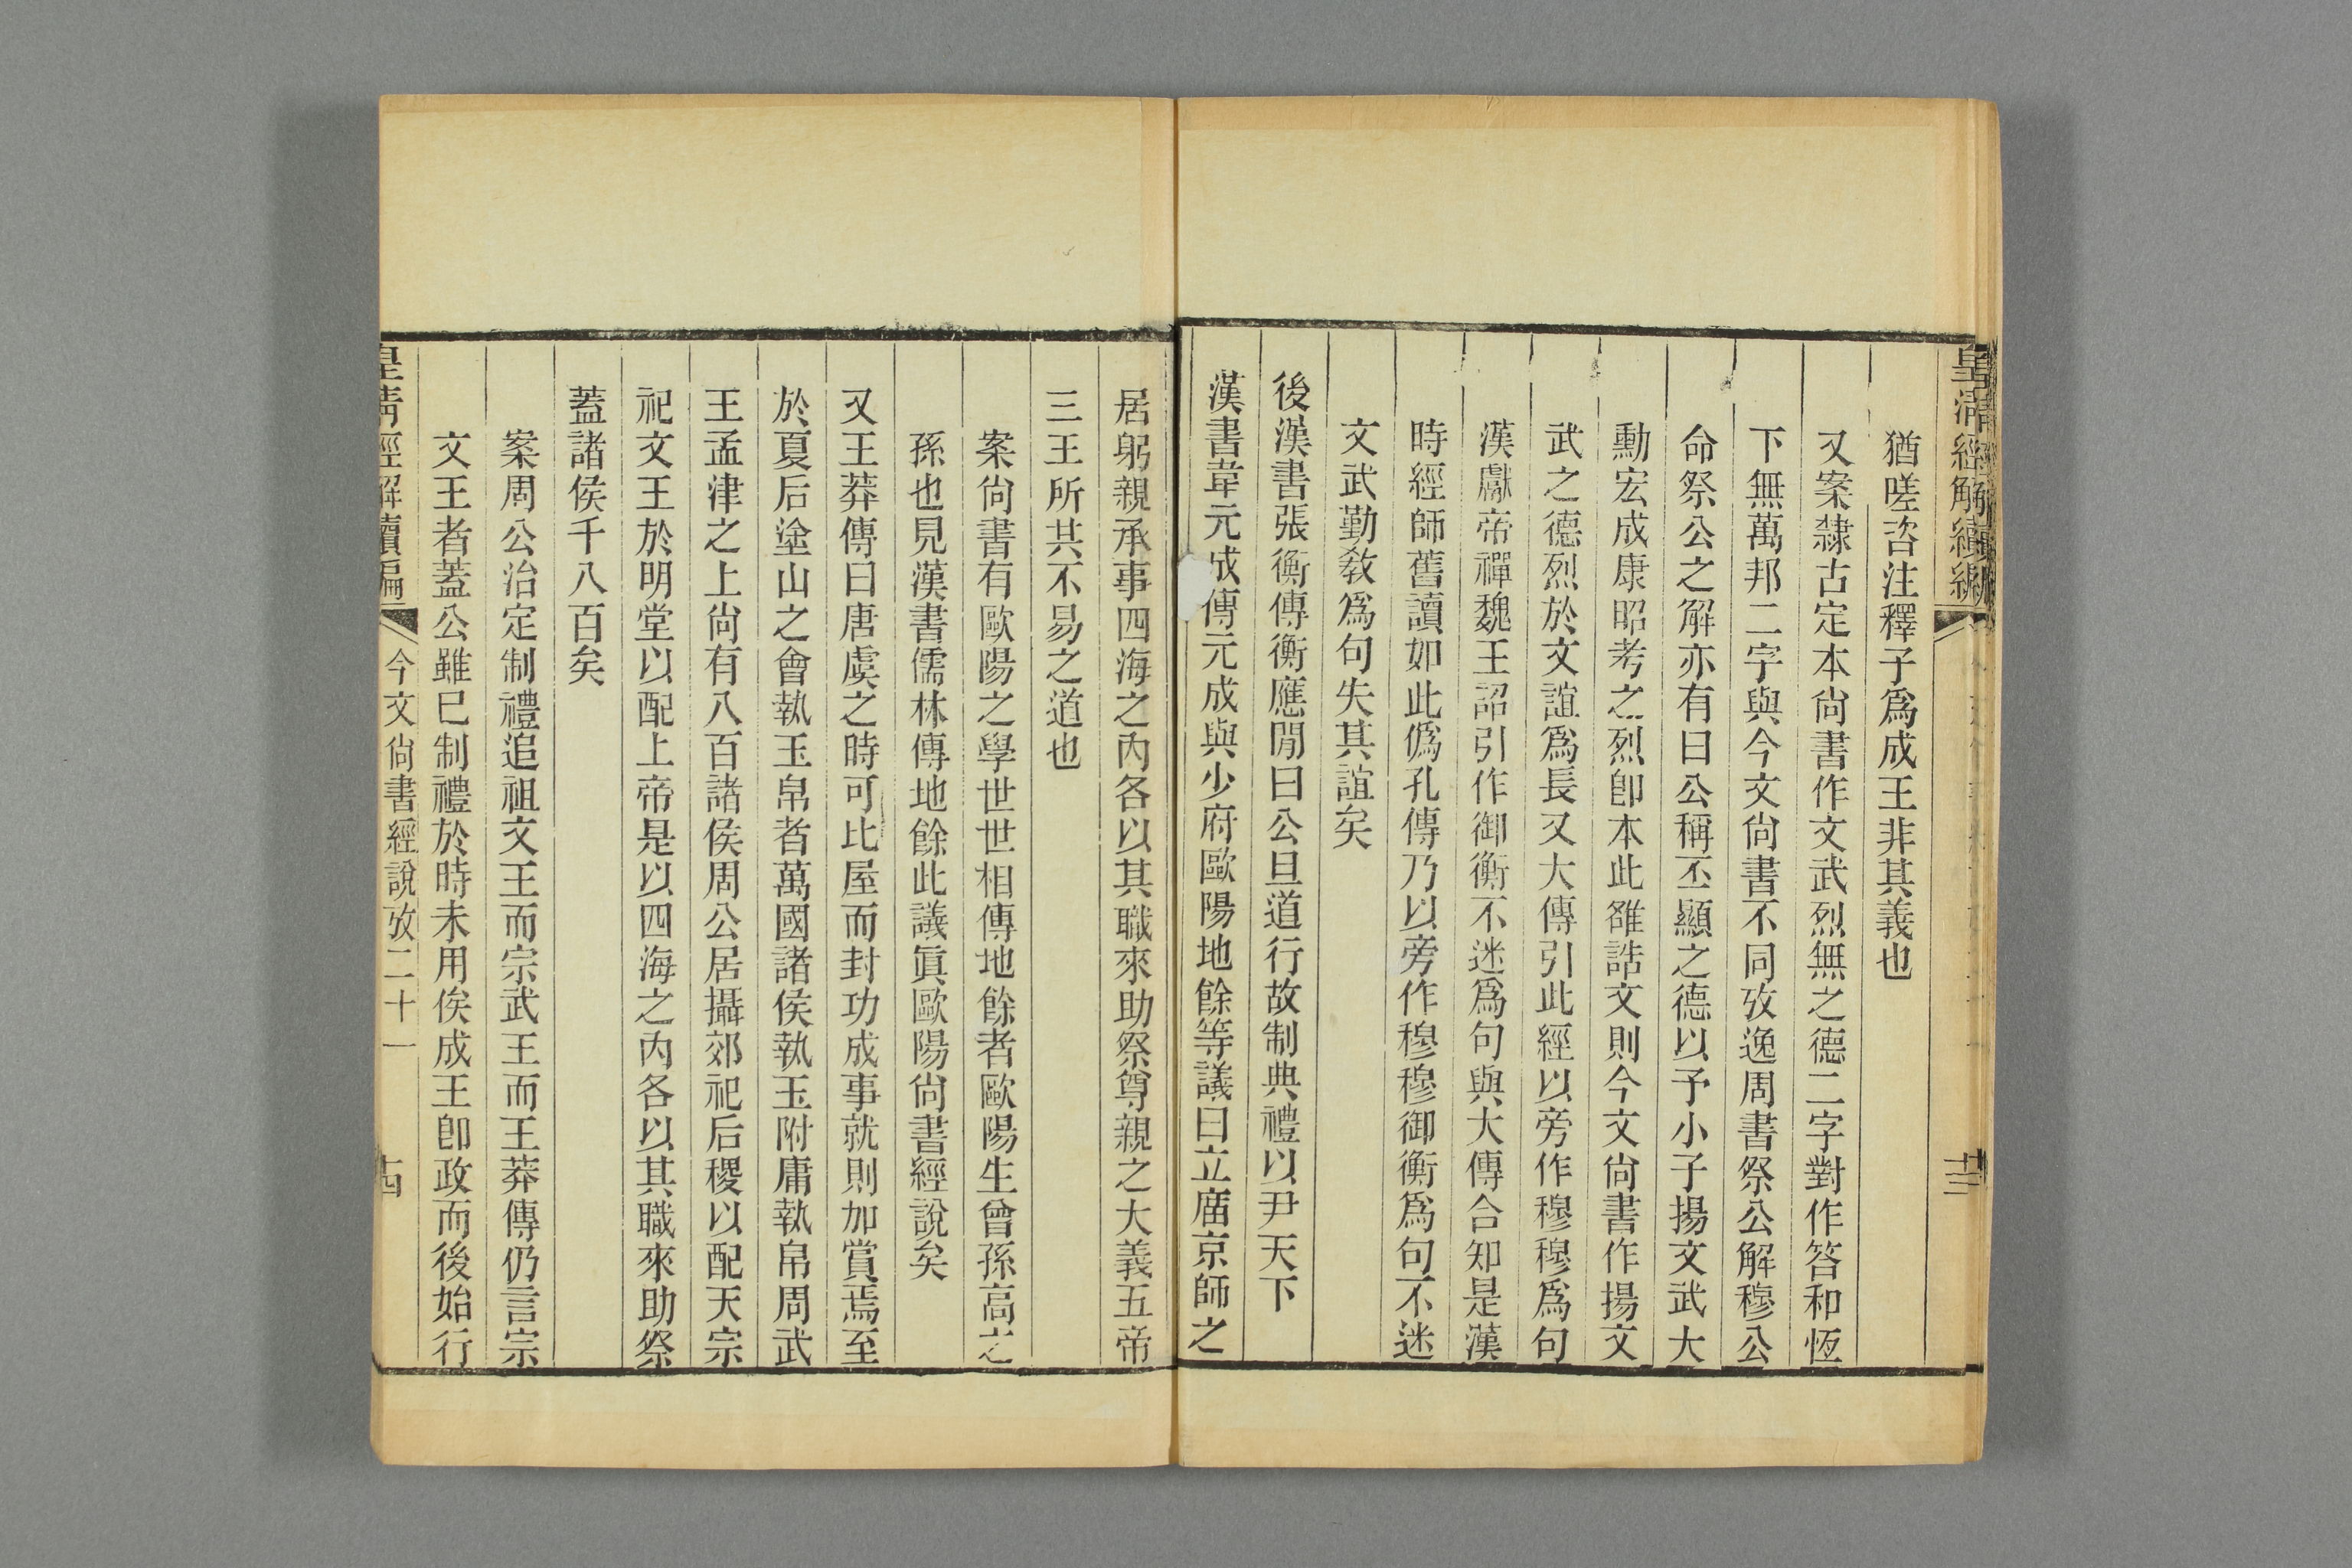 皇清經解續編
十三
猶嗟咨注釋子爲成王非其義也
又案隸古定本尙書作文武烈無之德二字對作答和恆
下無萬邦二字與今文尙書不同攷逸周書祭公解穆公
命祭公之解亦有曰公稱丕顯之德以予小子揚文武大
勳宏成康昭考之烈卽本此雒誥文則今文尙書作揚文
武之德烈於文誼爲長又大傳引此經以旁作穆穆爲句
漢獻帝禪魏王詔引作御衡不迷爲句與大傳合知是漢
時經師舊讀如此僞孔傳乃以旁作穆穆御衡爲句不迷
文武勤敎爲句失其誼矣
後漢書張衡傳衡應閒曰公旦道行故制典禮以尹天下
漢書韋元成傳元成與少府歐陽地餘等議曰立庿京師之
居躬親承事四海之內各以其職來助祭尊親之大義五帝
三王所共不易之道也
案尙書有歐陽之學世世相傳地餘者歐陽生曾孫高之
孫也見漢書儒林傳地餘此議眞歐陽尙書經說矣
又王莽傳曰唐虞之時可比屋而封功成事就則加賞焉至
於夏后塗山之會執玉帛者萬國諸侯執玉附庸執帛周武
王孟津之上尙有八百諸侯周公居攝郊祀后稷以配天宗
祀文王於明堂以配上帝是以四海之內各以其職來助祭
蓋諸侯千八百矣
案周公治定制禮追祖文王而宗武王而王莽傳仍言宗
文王者蓋公雖已制禮於時未用俟成王卽政而後始行
皇淸經解續編
今文尙書經說攷二十一
十四